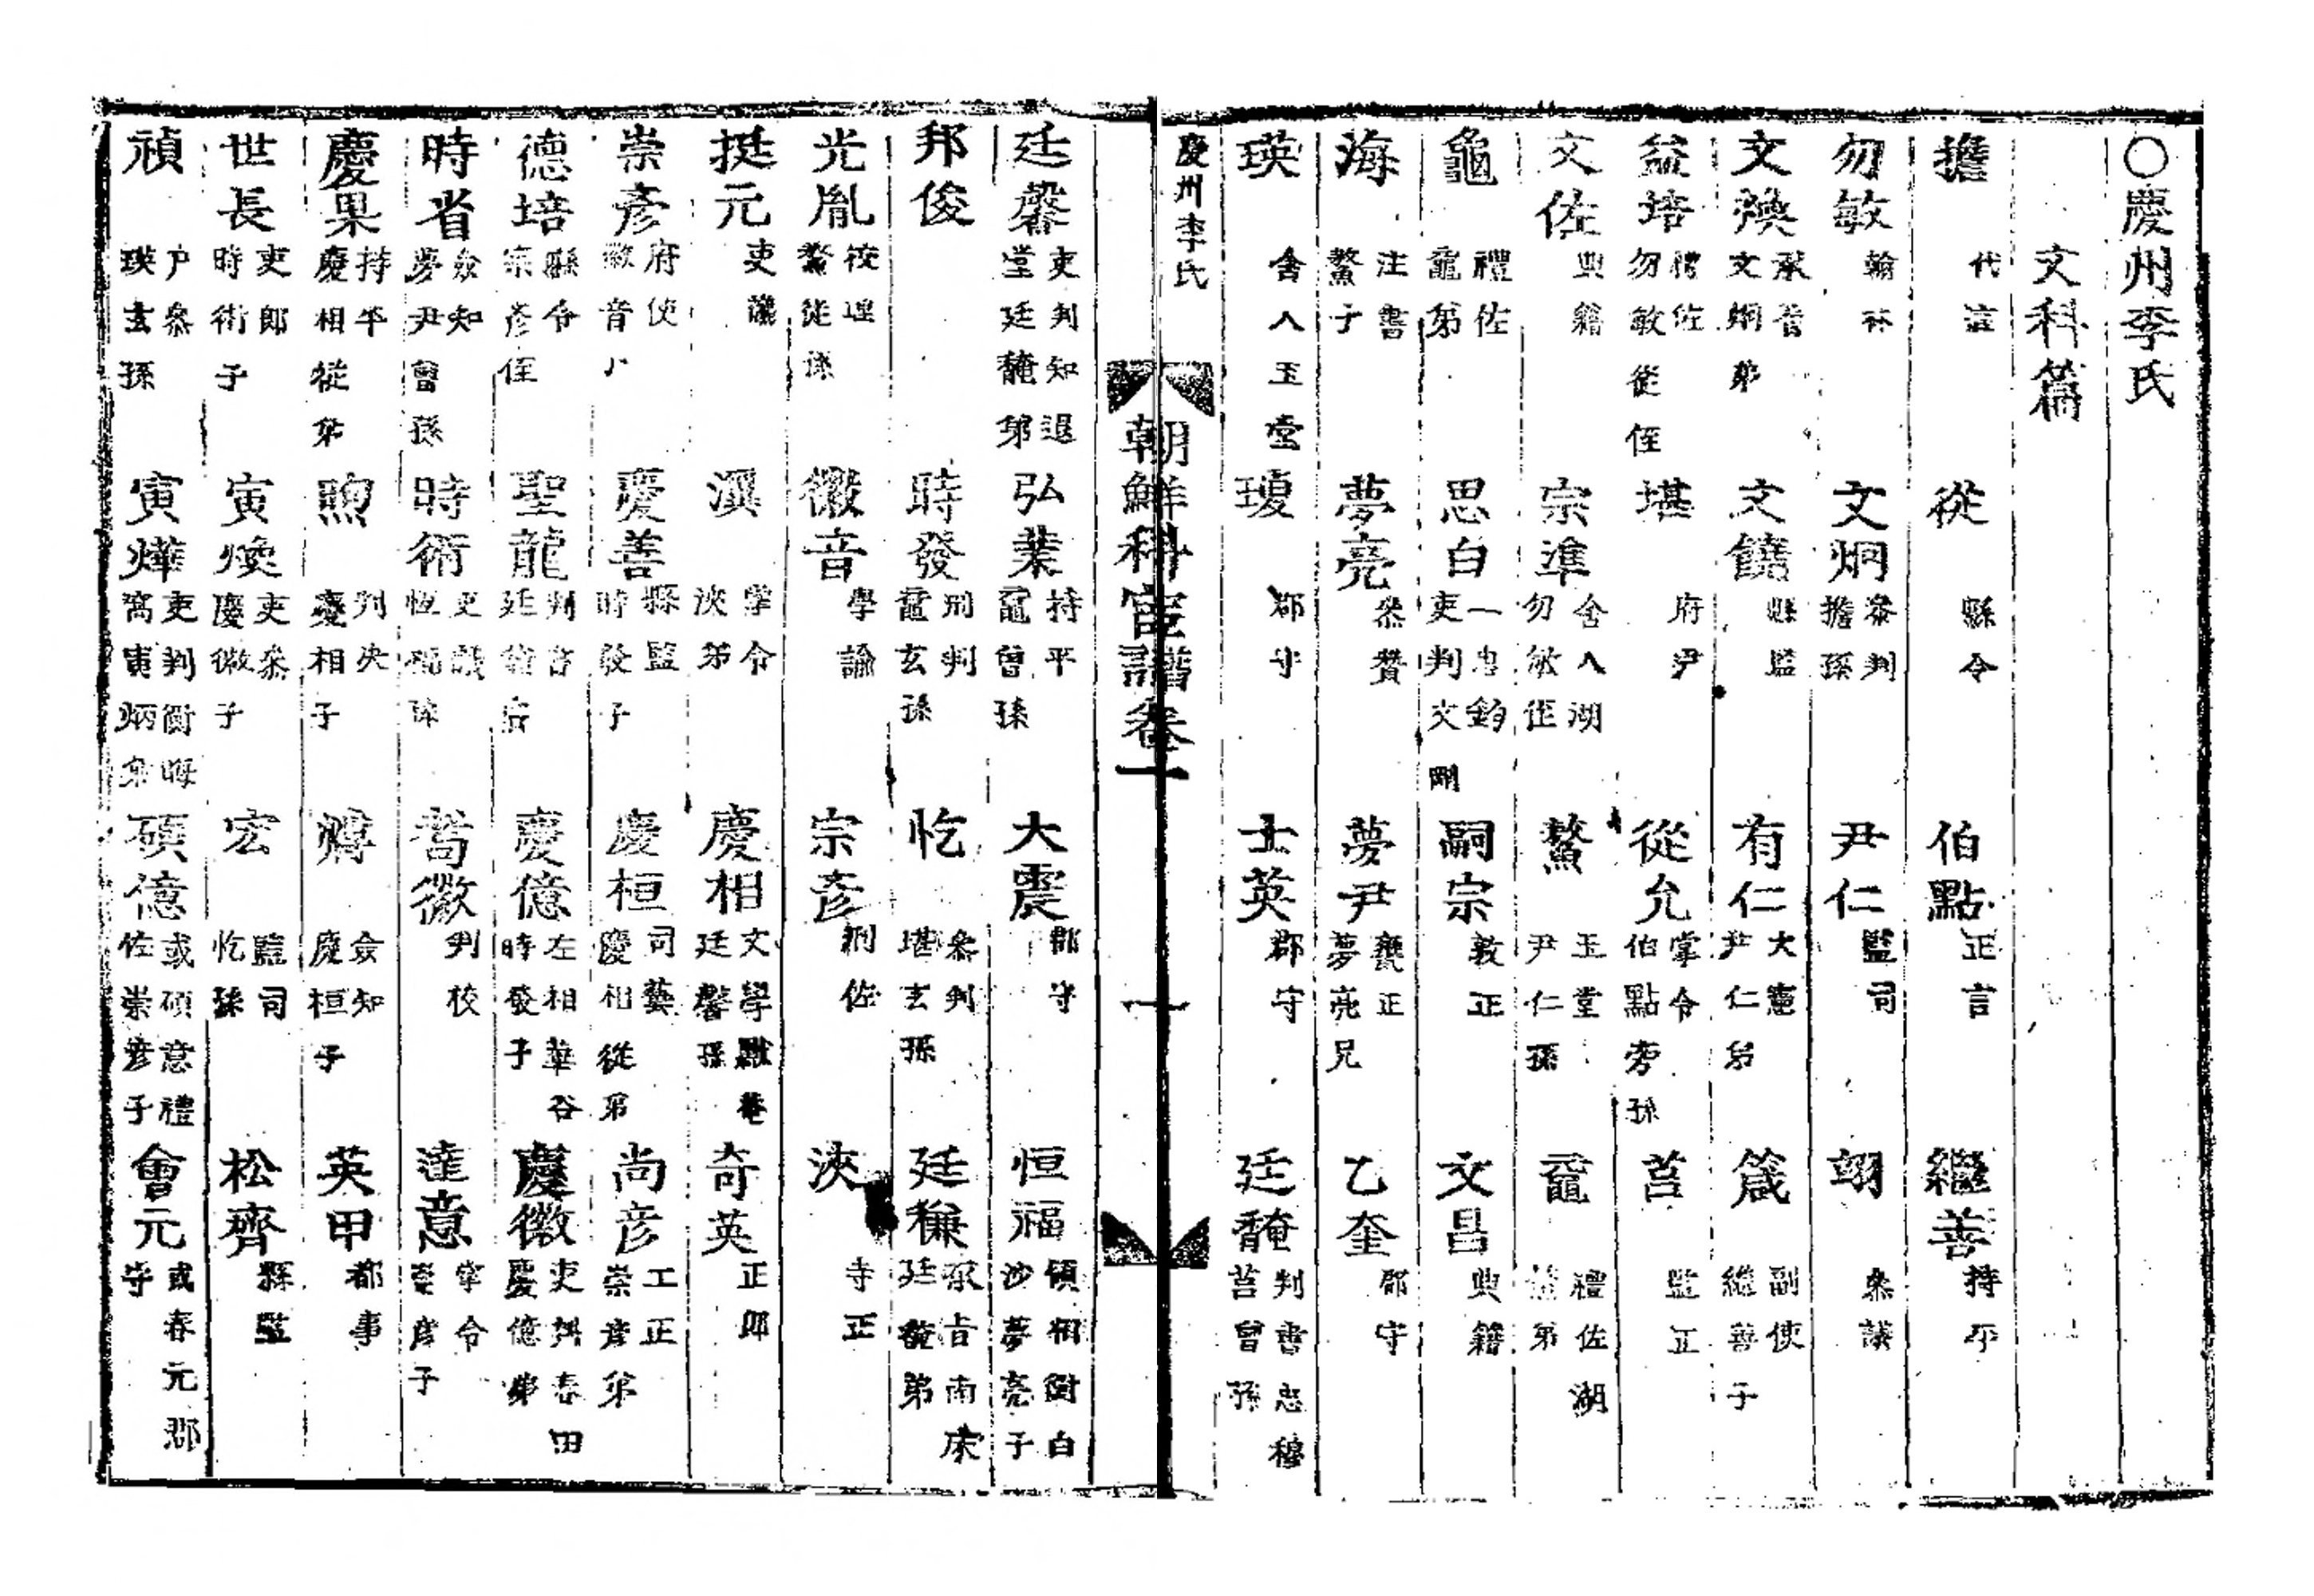 ○慶州李氏
文科篇
擔 代言 從 縣令 伯點 正言 繼善 持平
勿敏 翰林 文炯 參判 擔孫 尹仁 監司 翊 參議
文煥 承旨 文炯弟 文饒 縣監 有仁 大憲 尹仁弟 箴 副使 繼善子
益培 禮佐 勿敏從侄 堪 府尹 從允 掌令 伯點旁孫 莒 監正
文佐 典籍 宗準 舍人 湖 勿敏侄 鰲 玉堂 尹仁孫 黿 禮佐 湖 弟
龜 禮佐 黿弟 思白 一忠鈞 吏判 文剛 嗣宗 敦正 文昌 典籍
海 注書 鰲子 夢亮 參贊 夢尹 甕正 夢亮兄 乙奎 郡守
瑛 舍人 玉堂 瓊 郡守 士英 郡守 廷馣 判書 忠穆 莒曾孫
慶州李氏
朝鮮科宦譜卷一
一
廷馨 吏判 知退堂 廷馣弟 弘業 持平 黿曾孫 大震 郡守 恒福 領相 白沙 夢亮子
邦俊 時發 刑判 黿玄孫 忔 參判 堪玄孫 廷馦 承旨 南床 廷馣弟
光胤 校理 鰲從孫 徽音 學諭 宗彥 刑佐 浹 寺正
挺元 吏議 溟 掌令 浹弟 慶相 文學 廷馨孫 奇英 正郎
崇彥 府使 徽音 慶善 縣監 時發子 慶桓 司藝 慶相從弟 尚彥 工正 崇彥弟
德培 縣令 宗彥侄 聖龍 判書 廷馦 慶億 左相 華谷 時發子 慶徽 吏判 春田 慶億弟
時省 僉知 夢尹曾孫 時術 吏議 恒福孫 耇徵 判校 達意 掌令 崇彥子
慶果 持平 慶相從弟 煦 判決 慶相子 𤏐 僉知 慶桓子 英甲 都事
世長 吏郎 時術子 寅煥 吏參 慶徽子 宏 監司 忔孫 松齊 縣監
禎 戶參 瑛玄孫 寅燁 吏判 衡 晦窩 寅炳弟 碩億 或碩意 禮佐 崇彥子 會元 或春元 郡守